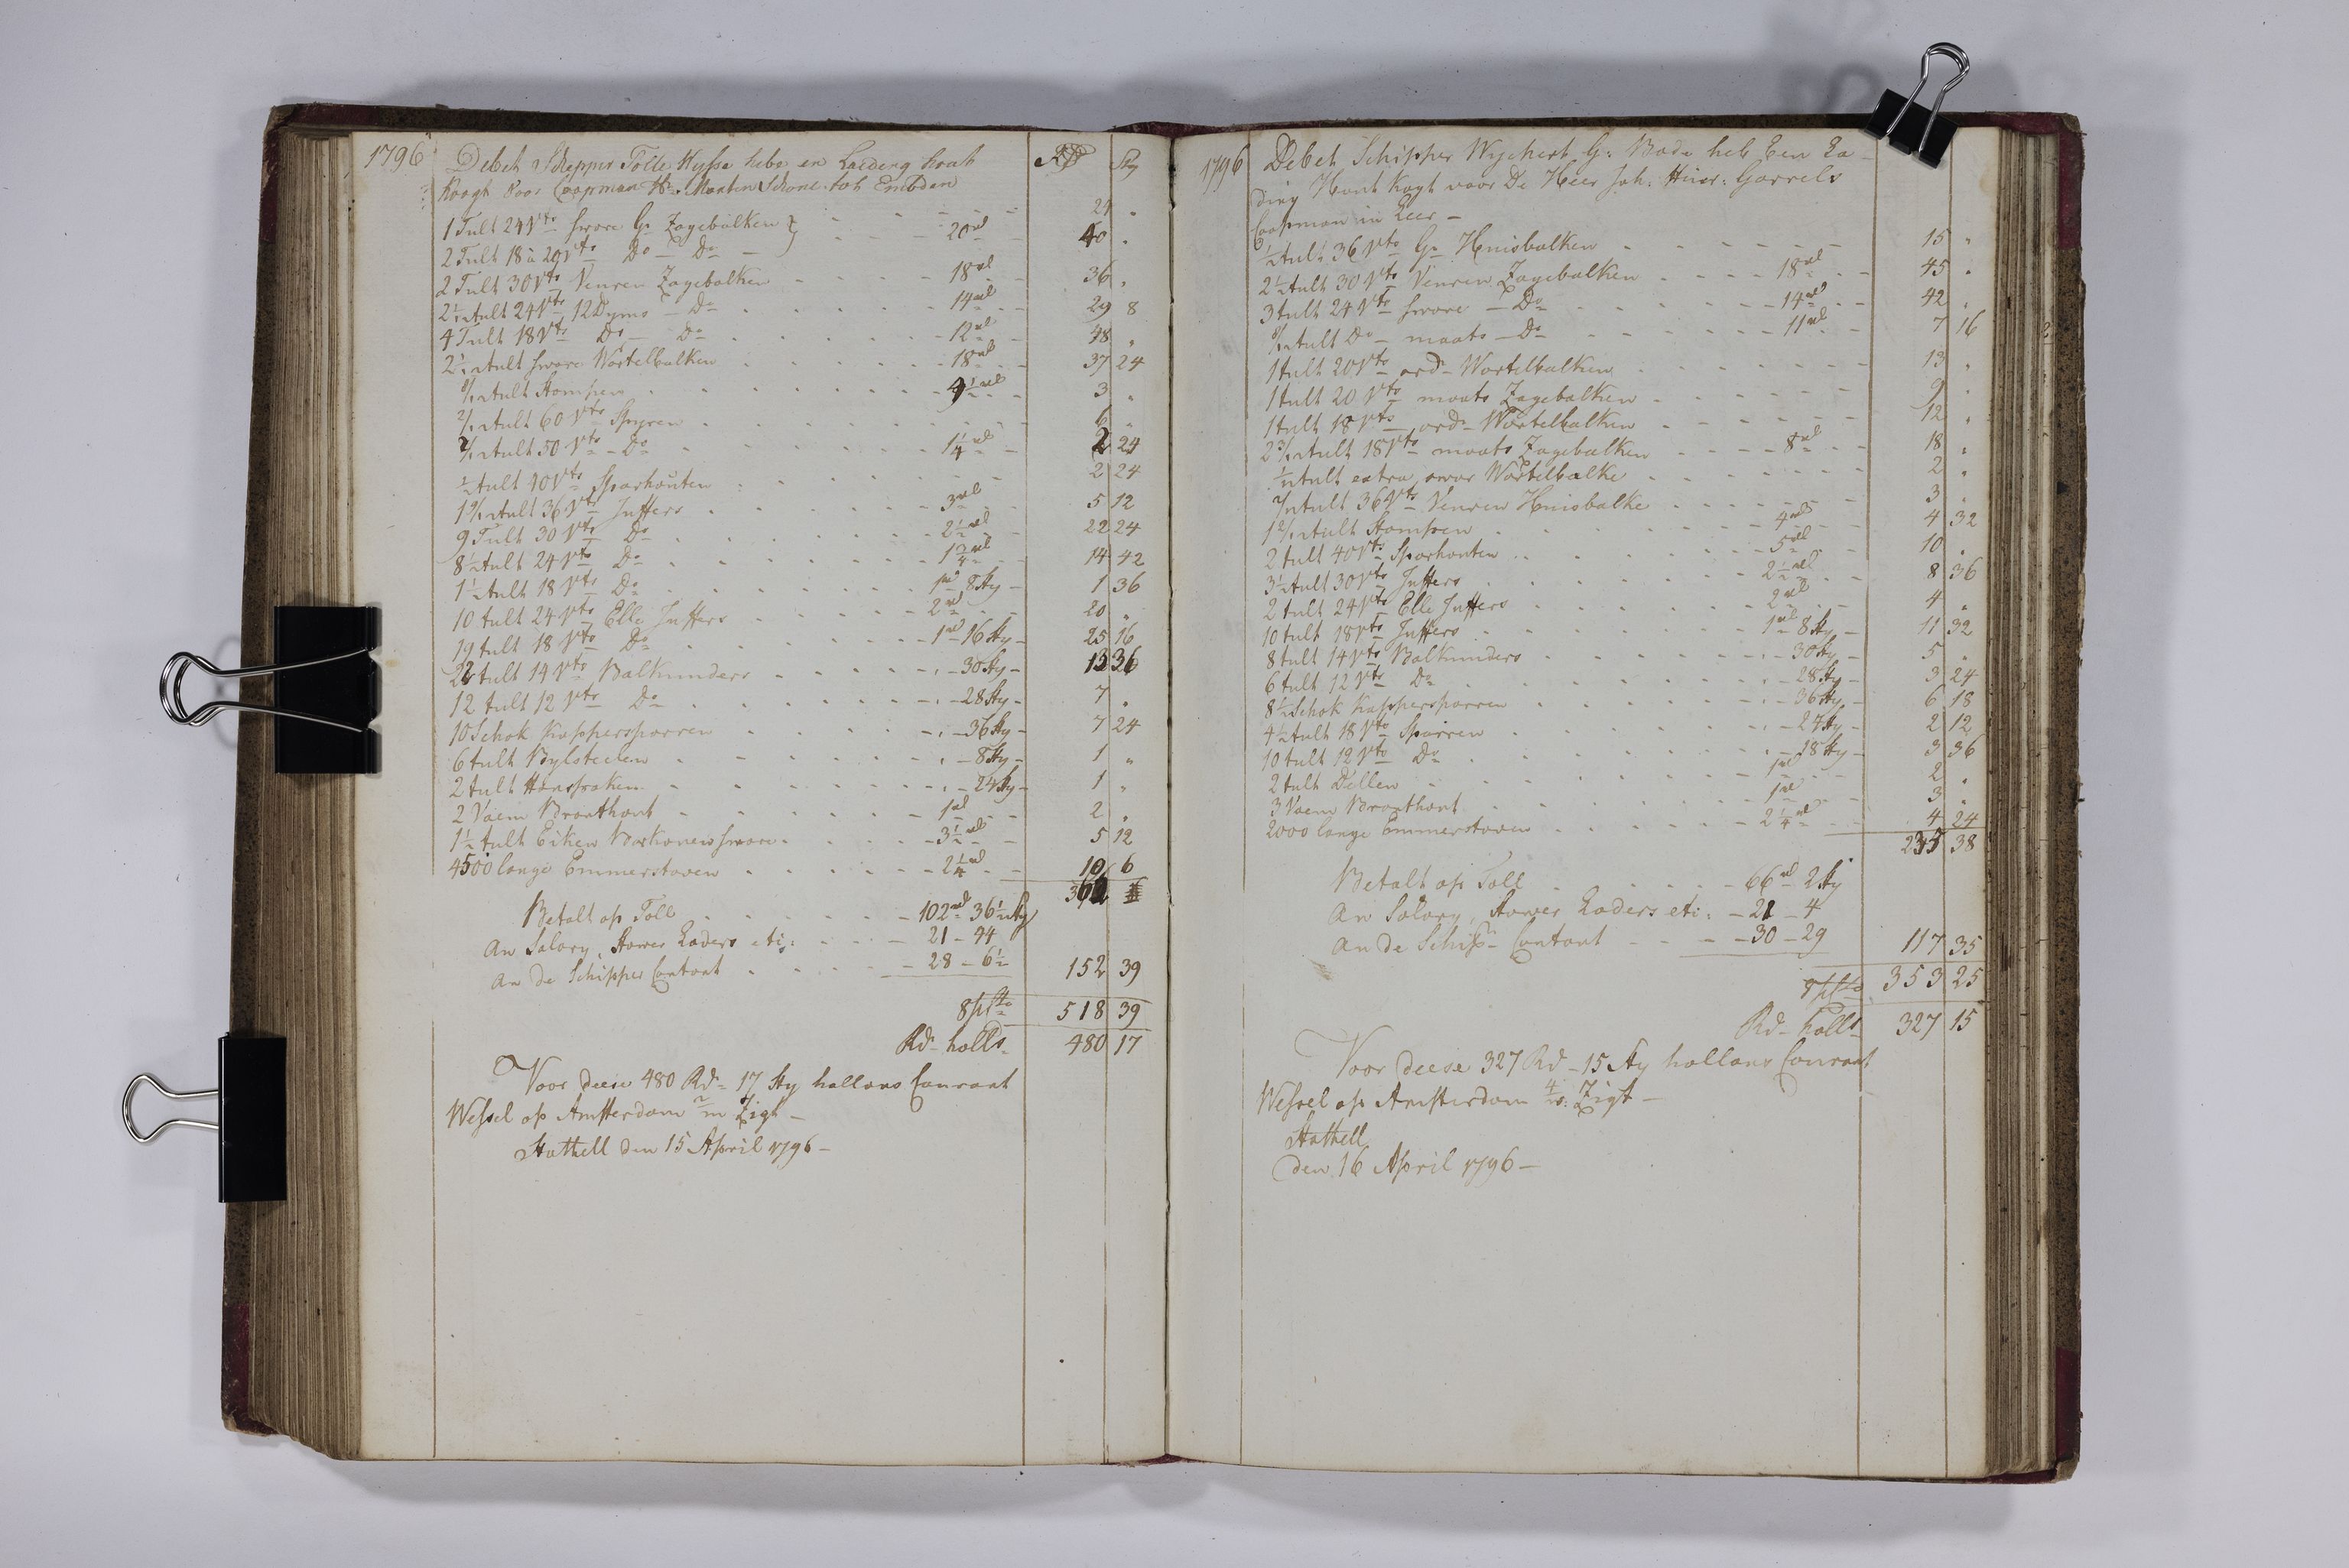 1796 Debet Schepper Tolle Hysse hebe en Laeding haut RD Sty
Koogt voor Coopman Hr. Marten Schone tot Embden
1 Tult 24 Vts sware Gr. Zagebalken 24 "
2 Tult 18 à 20 Vts Do - Do - 20rd 40 "
2 Tult 30 Vts Venren Zagebalken 18rd 36 "
2 1/12 tult 24 Vts 12 Dyms - Do 14rd 29 8
4 Tult 18 Vts Do - Do 12rd 48 "
2 1/12 tult sware Wortelbalken 18rd 37 24
8/12 tult Stompen 4 1/2rd 3 "
2/12 tult 60 Vts Spyren 6 "
2/12 tult 50 Vts - Do 1 1/4rd 2 24
1/2 tult 40 Vts Sparhouten 2 24
1 9/12 tult 36 Vts Juffers 3rd 5 12
9 Tult 30 Vts Do 2 1/2rd 22 24
8 1/2 tult 24 Vts Do 1 3/4rd 14 42
1 1/2 tult 18 Vts Do 1rd 8 Sty 1 36
10 tult 24 Vts Elle Juffers 2rd 20 "
19 tult 18 Vts Do 1rd 16 Sty 25 16
22 tult 14 Vts Balkunders 30 Sty 13 36
12 tult 12 Vts Do 28 Sty 7 "
10 Schok Kappersparren 36 Sty 7 24
6 tult Bylsteelen 8 Sty 1 "
2 tult Hansspaken 24 Sty 1 "
2 Vaem Branthout 1rd 2 "
1 1/2 tult Eiken sware 3 1/2rd 5 12
4500 lange Emmerstaven 2 1/4rd 10 6
Betalt op Toll 102rd 36 1/2 Sty
an Salary, Stower Laders etc: 21 - 44
an de Schipper Contant 28 - 6 1/2 152 39
8 pCto 518 39
Rd holls 480 17
Voor deese 480 Rd 17 Sty hollans Couraat
Wessel op Amsterdam 2/m Zigt -
Stathell den 15 April 1796 -
1796 Debet Schipper Wychert G: Bode heb Een La-
ding Hout Kogt voor De Heer Joh: Hinr: Garrels
Coopman in Leer -
1/2 tult 36 Vts Gr. Huisbalken 15 "
2 1/2 tult 30 Vts Venren Zagebalken 18rd 45 "
3 tult 24 Vts sware - Do 14rd 42 "
8/12 tult Do - maats - Do 11rd 7 16
1 tult 20 Vts ord Wortelbalken 13 "
1 tult 20 Vts maats Zagebalken 9 "
1 tult 18 Vts ord Wortelbalken 12 "
2 3/12 tult 18 Vts maats Zagebalken 8rd 18 "
1/12 tult extra swar Wortelbalke 2 "
2/12 tult 36 Vts Venren Huisbalke 3 "
1 2/12 tult Stompen 4rd 4 32
2 tult 40 Vts Sparhouten 5rd 10 "
3 1/2 tult 30 Vts Juffers 2 1/2rd 8 36
2 tult 24 Vts Elle Juffers 2rd 4 "
10 tult 18 Vts Juffers 1rd 8 Sty 11 32
8 tult 14 Vts Balkunders 30 Sty 5 "
6 tult 12 Vts Do 28 Sty 3 24
8 1/2 Schok Kappersparren 36 Sty 6 18
4 1/2 tult 18 Vts Sparren 24 Sty 2 12
10 tult 12 Vts Do 18 Sty 3 36
2 tult Dellen 1rd 2 "
3 Vaem Branthout 1rd 3 "
2000 lange Emmerstaven 2 1/4rd 4 24
235 38
Betalt op Toll 66rd 2 Sty
an Salary, Stower Laders etc: 21 - 4
an de Schip - Contant 30 - 29 117 35
8 pCto 353 25
Rd holls 327 15
Voor deese 327 Rd - 15 Sty hollans Couraat
Wessel op Amsterdam Zigt -
Stathell
den 16 April 1796 -